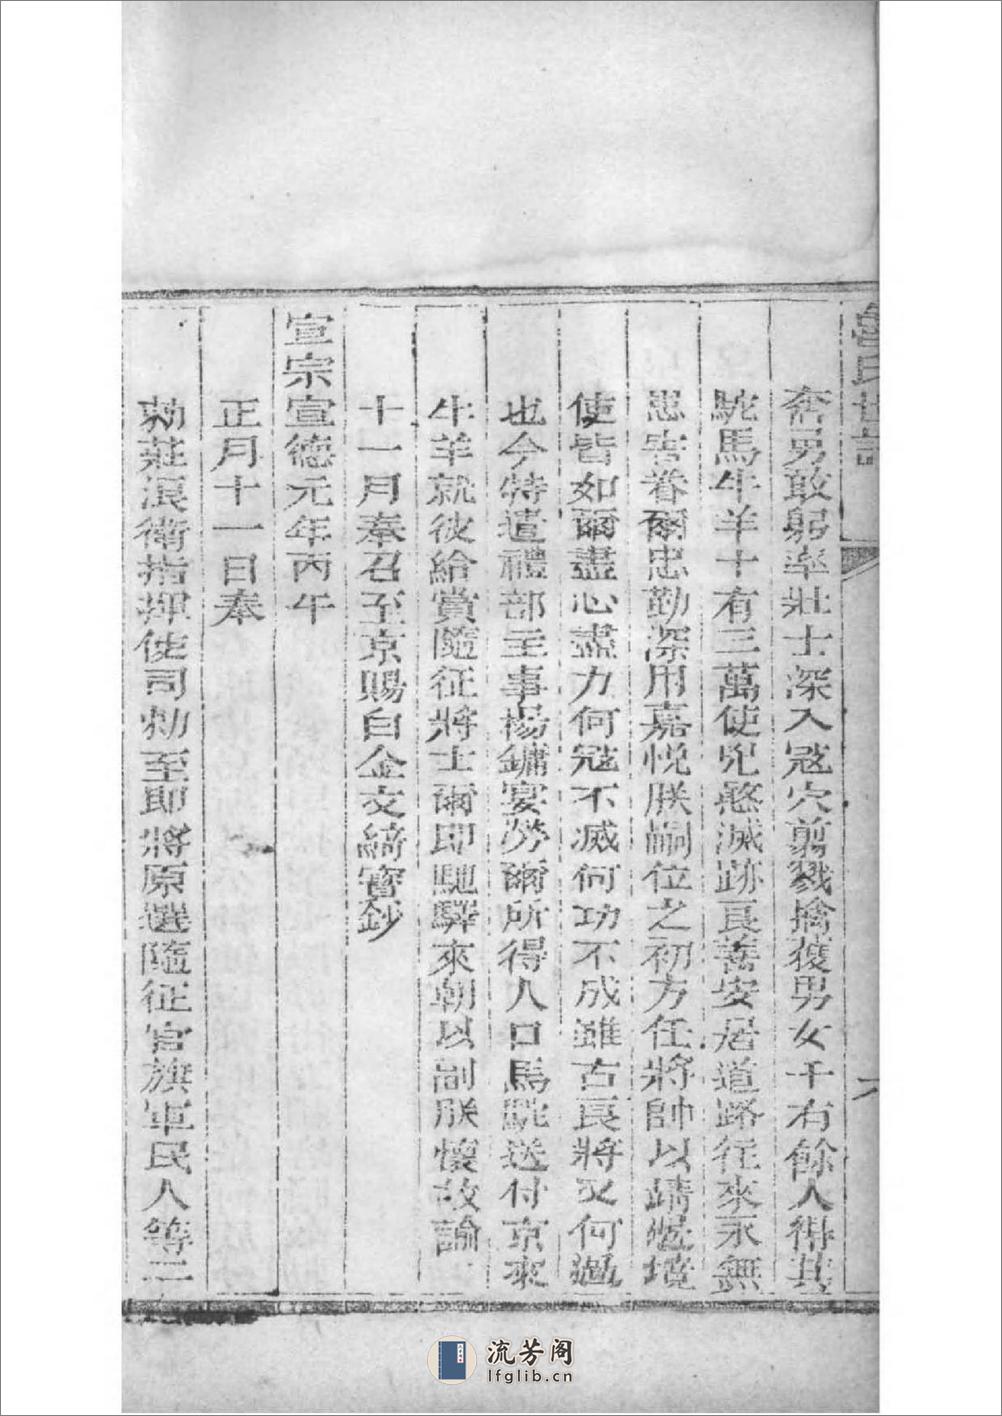 魯氏世譜
奮勇敢躬率壯士深入寇穴剪戮擒獲男女千有餘人得其
駝馬牛羊十有三萬使兇憨滅跡良善安居道路往來永無
患害眷爾忠勤深用嘉悅朕嗣位之初方任將帥以靖邊境
使皆如爾盡心盡力何寇不滅何功不成雖古良將又何過
也今特遣禮部主事楊鏞宴勞爾所得人口馬駝送付京來
牛羊就彼給賞隨征將士爾即馳驛來朝以副朕懷故諭
十一月奉召至京賜白金文綺寶鈔
宣宗宣德元年丙午
正月十一日奉
勑莊浪衛指揮使司勑至即將原選隨征官旗軍民人等二
六
流芳阁
lfglib.cn